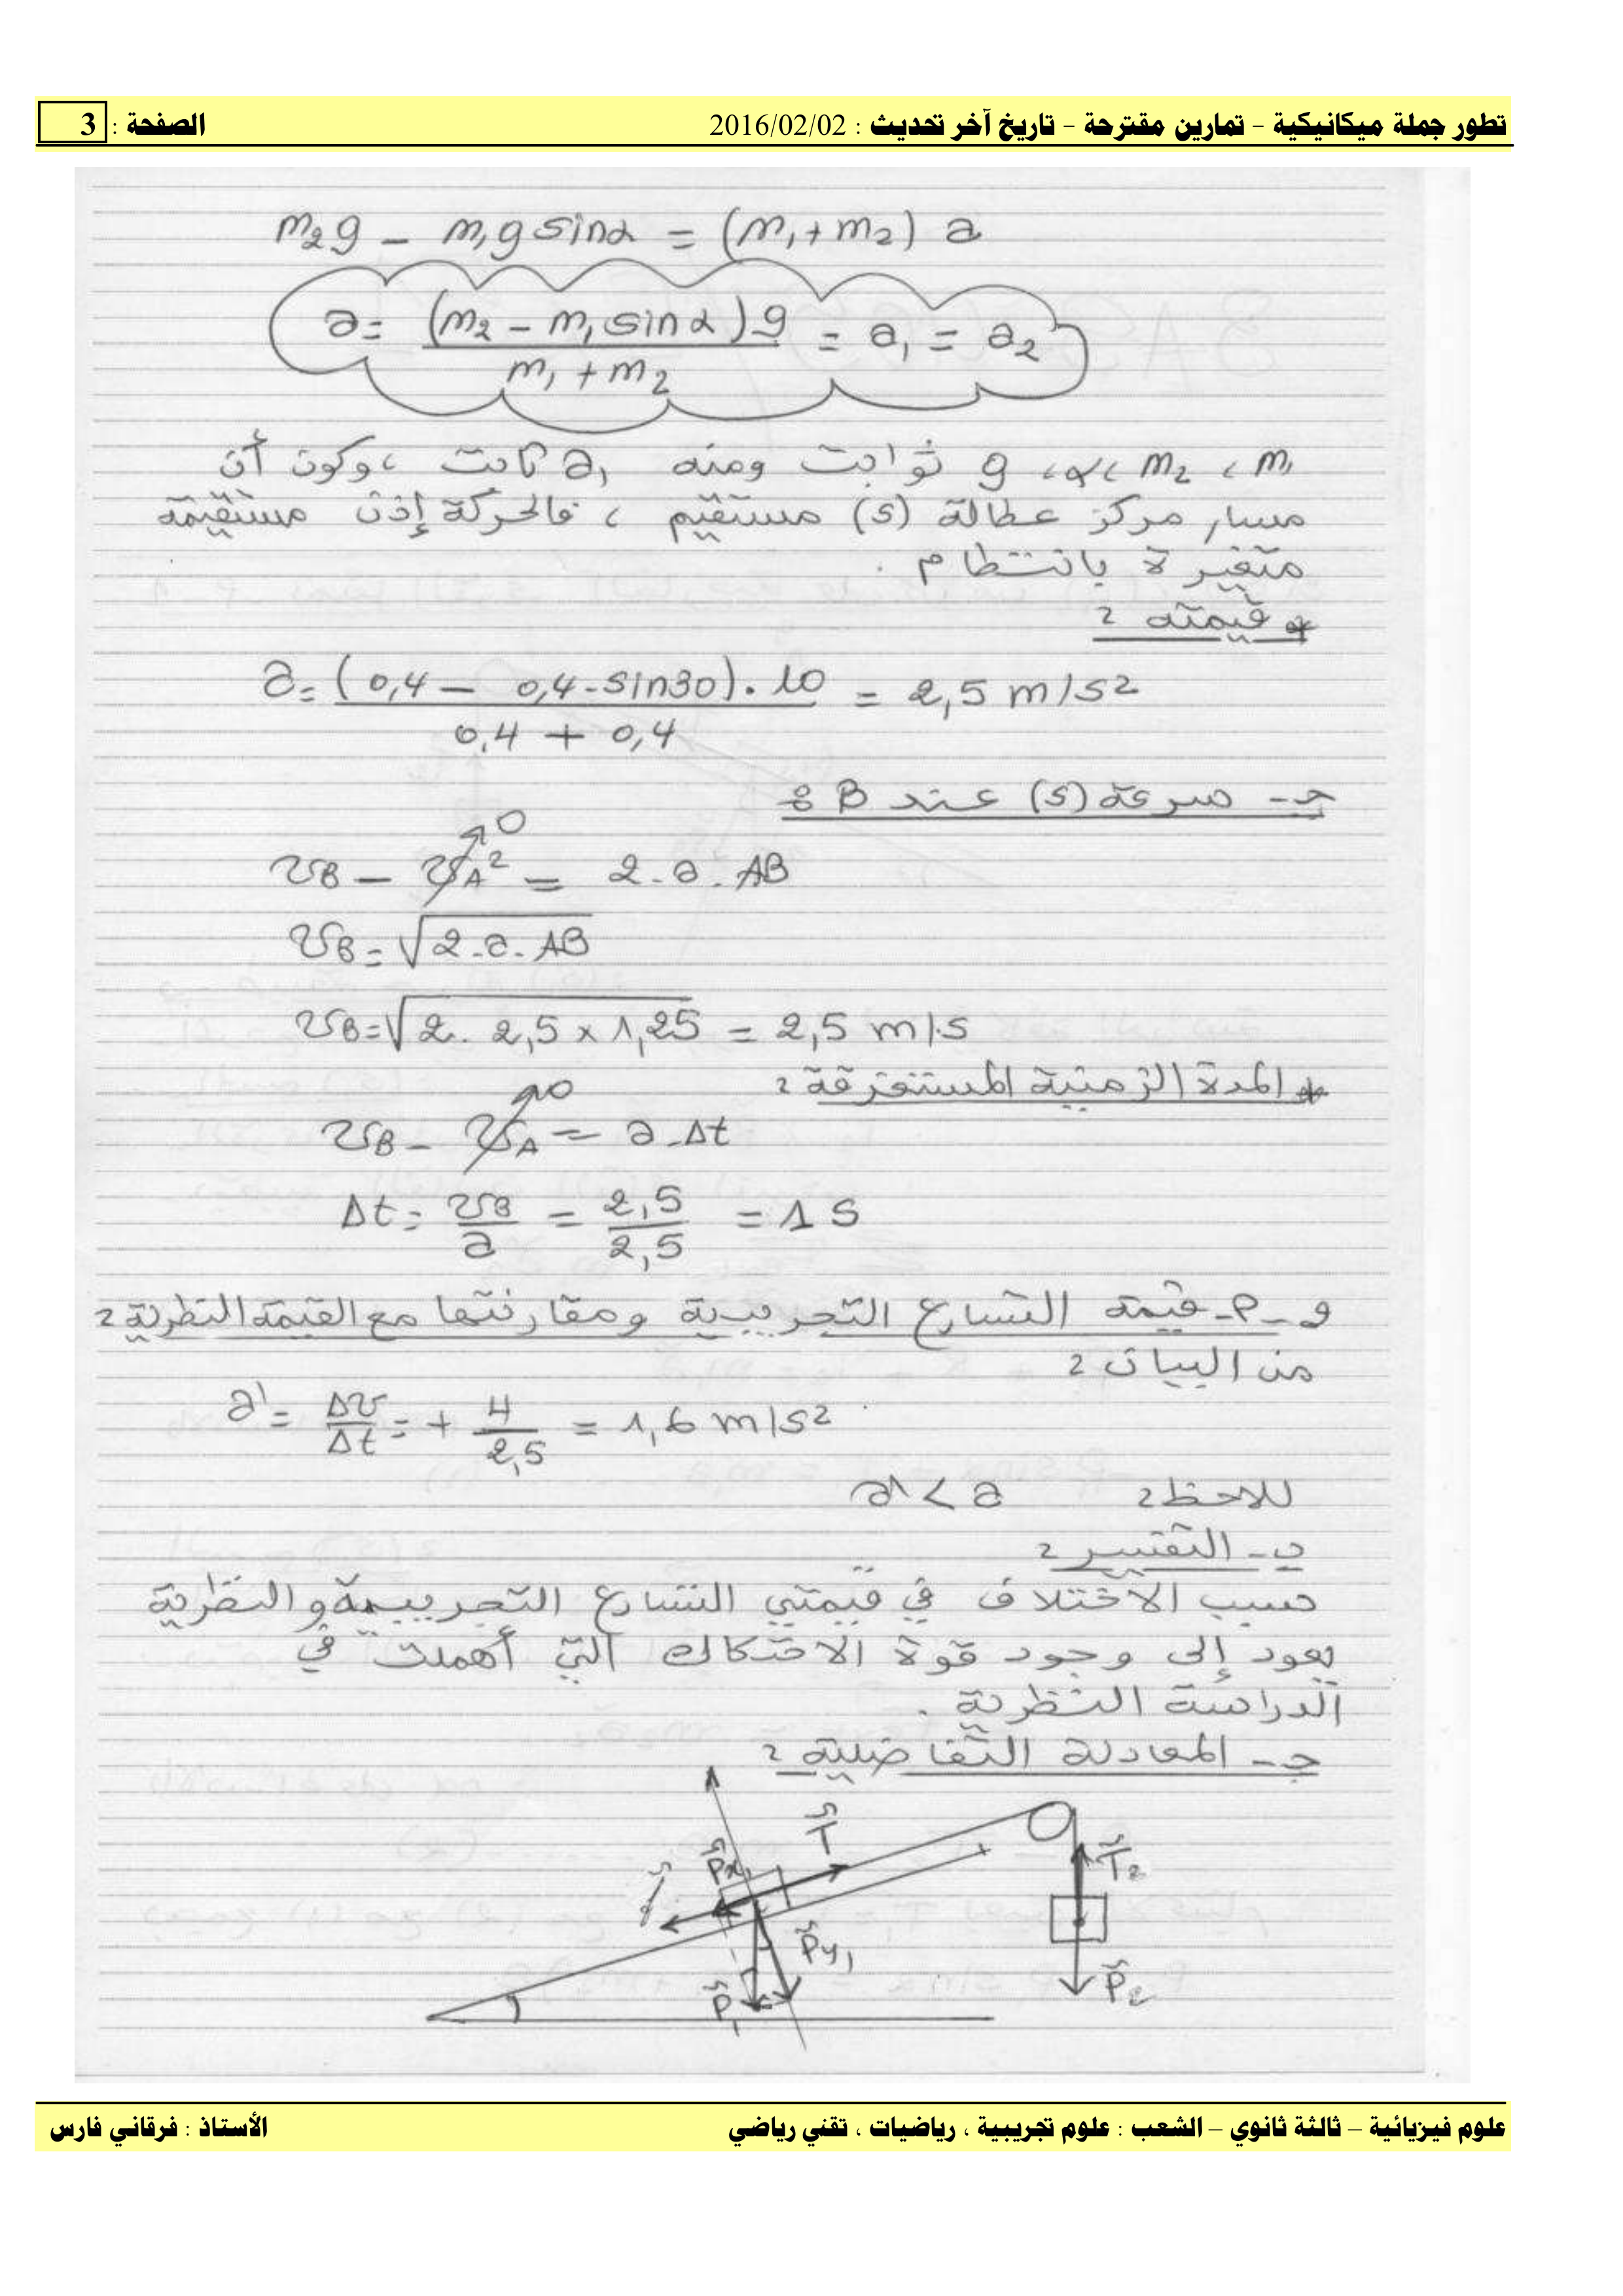 تطور جملة ميكانيكية - تمارين مقترحة - تاريخ آخر تحديث : 2016/02/02 الصفحة : 3
m₂g - m₁g sinα = (m₁+m₂) a
a = (m₂ - m₁ sinα) g / m₁ + m₂ = a₁ = a₂
m₁ ، m₂ ، α ، g ثوابت ومنه a₁ ثابت ، وكون أن
مسار مركز عطالة (S) مستقيم ، فالحركة إذن مستقيمة
متغيرة بانتظام .
* قيمته :
a = (0,4 - 0,4 . sin30) . 10 / 0,4 + 0,4 = 2,5 m/s²
جـ - سرعة (S) عند B :
v_B - v_A² = 2 . a . AB
0
v_B = √2 . a . AB
v_B = √2 . 2,5 × 1,25 = 2,5 m/s
* المدة الزمنية المستغرقة :
v_B - v_A = a . Δt
0
Δt = v_B / a = 2,5 / 2,5 = 1 s
و - أ - قيمة التسارع التجريبية ومقارنتها مع القيمة النظرية :
من البيان :
a' = Δv / Δt = + 4 / 2,5 = 1,6 m/s²
نلاحظ : a' < a
ب - التفسير :
سبب الاختلاف في قيمتي التسارع التجريبية والنظرية
يعود إلى وجود قوة الاحتكاك التي أهملت في
الدراسة النظرية .
جـ - المعادلة التفاضلية :
T
Px₁
f
T₂
Py₁
P₁
P₂
علوم فيزيائية – ثالثة ثانوي – الشعب : علوم تجريبية ، رياضيات ، تقني رياضي الأستاذ : فرقاني فارس